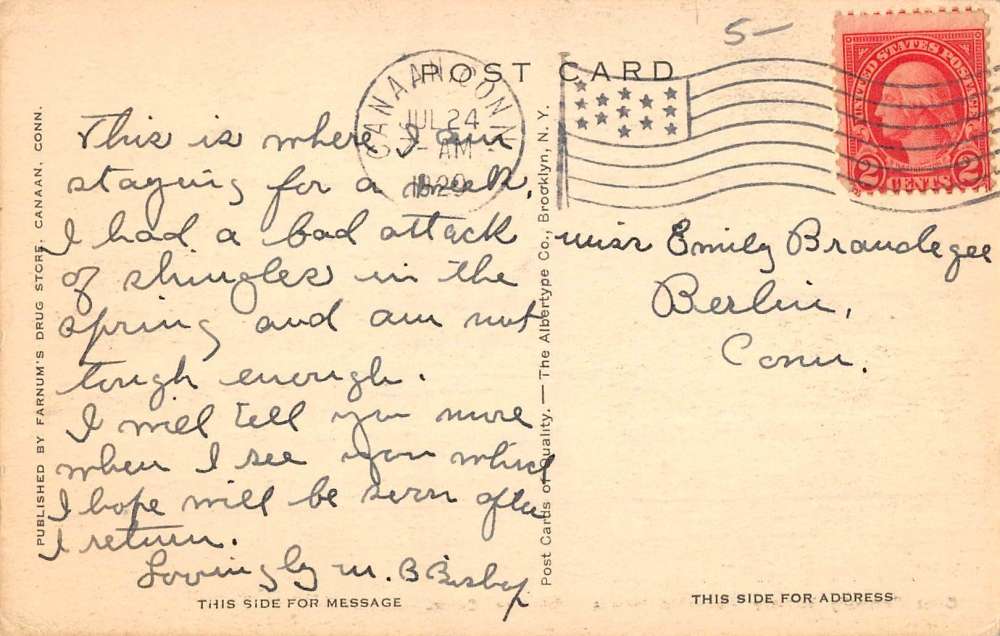 5-
POST CARD
CANAAN, CONN.
JUL 24
AM
1929
UNITED STATES POSTAGE
2 CENTS 2
This is where I am
staying for a week,
I had a bad attack
of shingles in the
spring and am not
tough enough.
I will tell you more
when I see you which
I hope will be soon after
I return.
Lovingly M. B Bishop
Miss Emily Brandegee
Berlin,
Conn.
PUBLISHED BY FARNUM'S DRUG STORE, CANAAN, CONN.
Post Cards of Quality. — The Albertype Co., Brooklyn, N. Y.
THIS SIDE FOR MESSAGE
THIS SIDE FOR ADDRESS